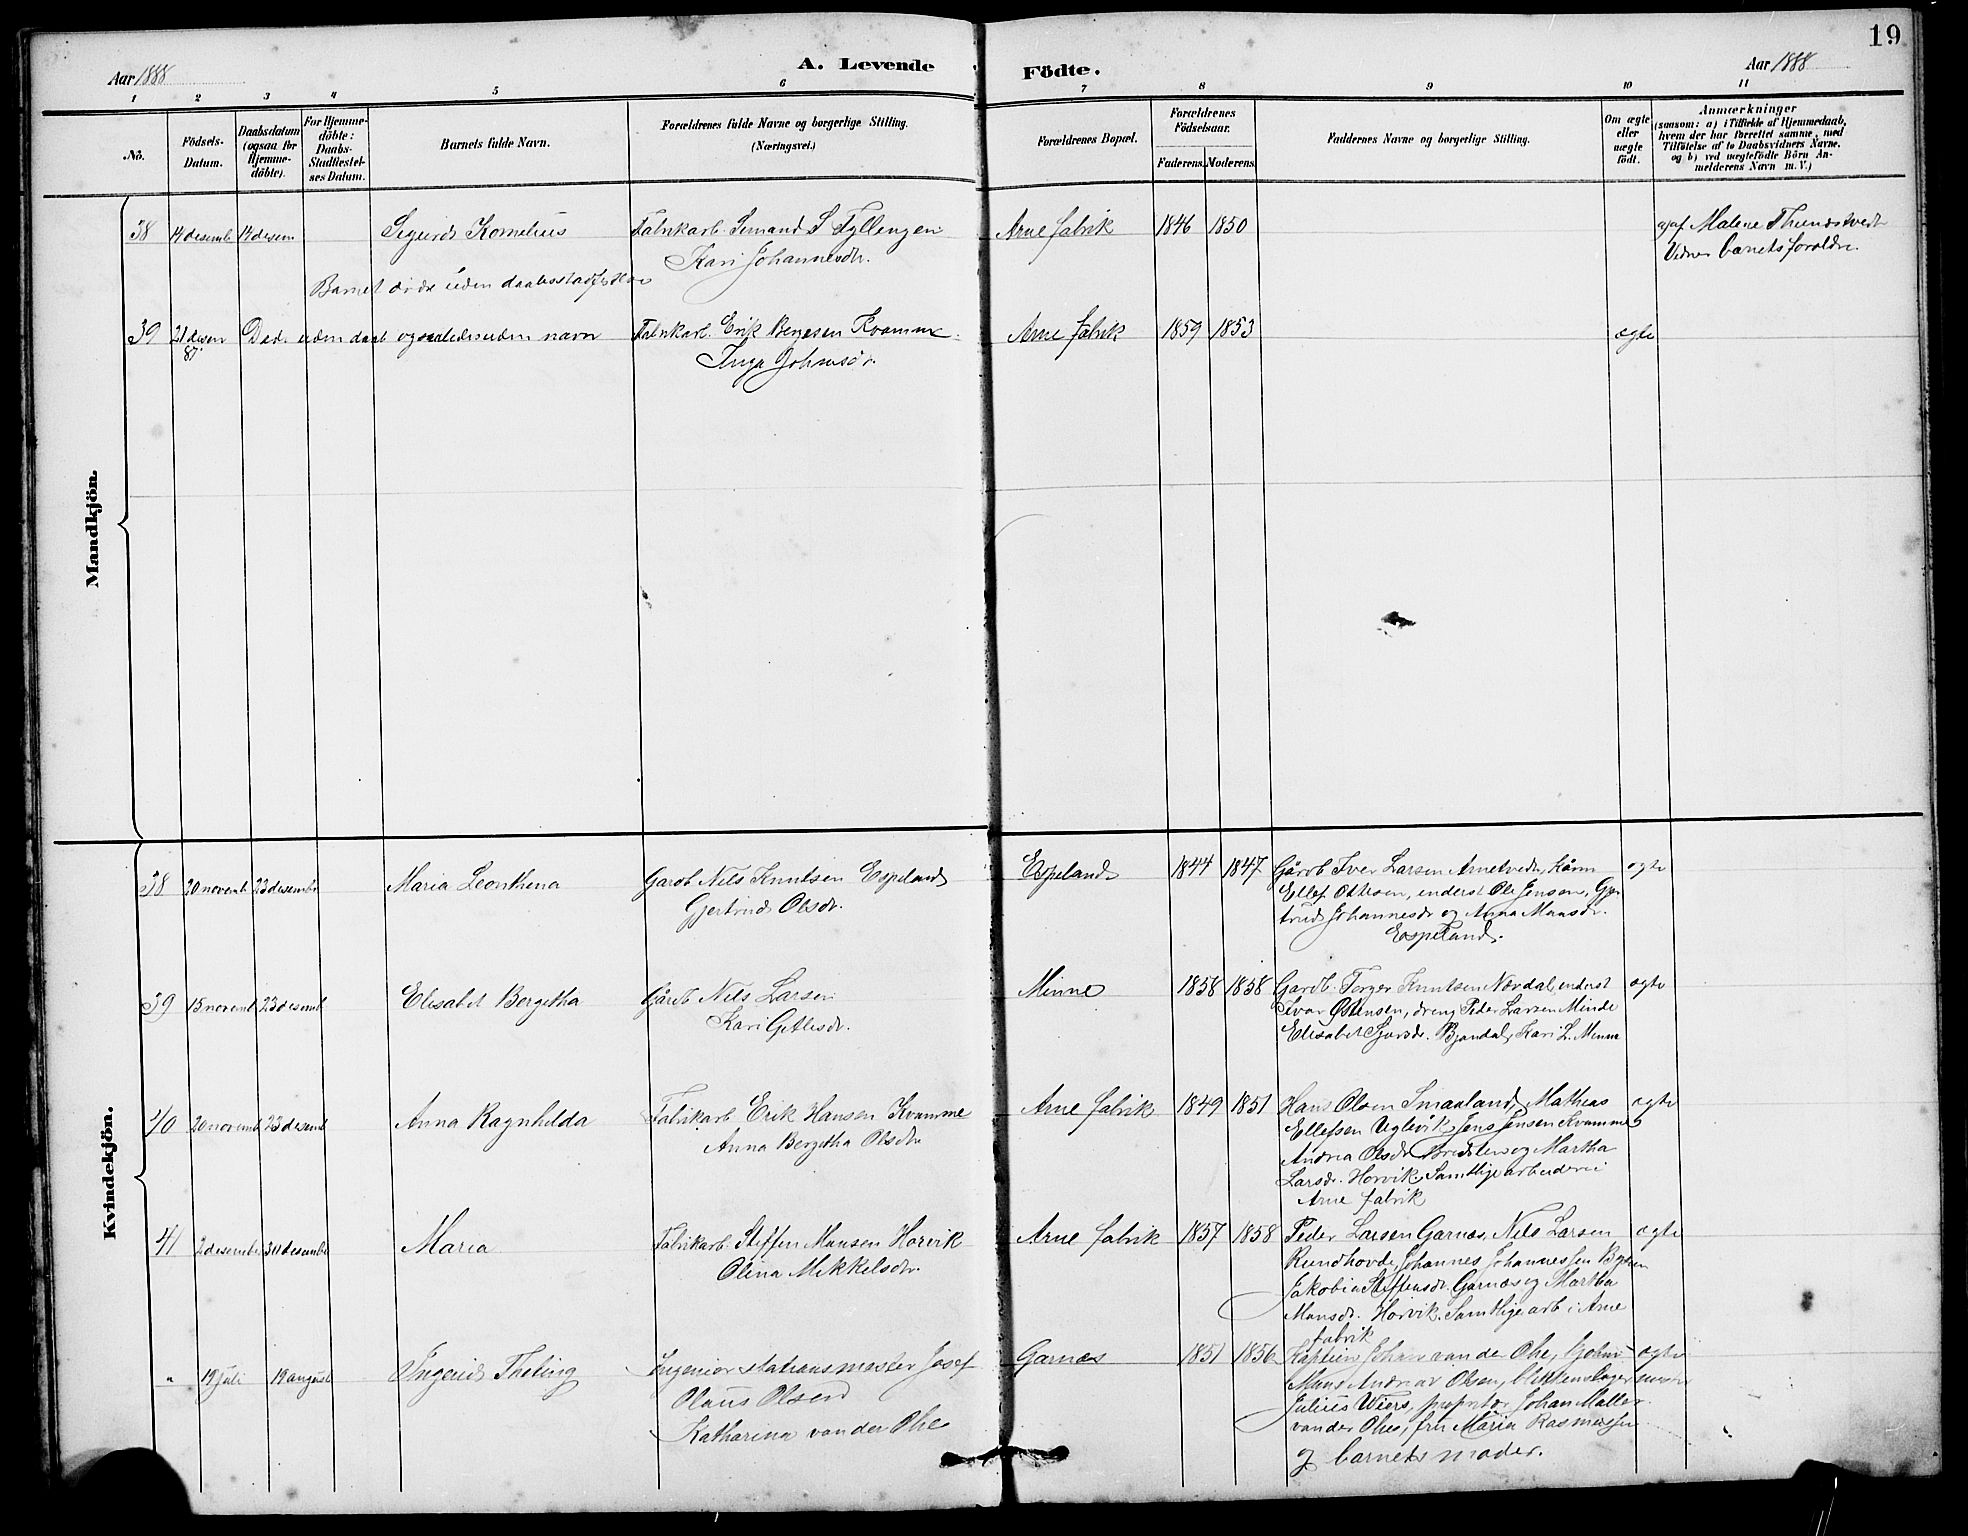 19
Aar 1888
A. Levende Födte.
Aar 1888
1 2 3 4 5 6 7 8 9 10 11
No.
Födsels-Datum.
Daabsdatum (ogsaa for Hjemme-döbte).
For Hjemme-döbte: Daabs-Stadfæstel-ses Datum.
Barnets fulde Navn.
Forældrenes fulde Navne og borgerlige Stilling.
(Næringsvei.)
Forældrenes Bopæl.
Forældrenes Födselsaar.
Faderens. Moderens.
Faddernes Navne og borgerlige Stilling.
Om ægte eller uægte födt.
Anmærkninger
(saasom: a) i Tilfælde af Hjemmedaab,
hvem der har forrettet samme, med
Tilföielse af to Daabsvidners Navne,
og b) ved uægtefödte Börn An-
melderens Navn m. V.)
Mandkjön.
38 14 desemb 14 desem Sigurd Kornelius Fabrikarb. S Fyllengen Arne fabrik 1846 1850 af Malene
Kari Johannesdr. barnets forældre
Barnet døde uden daabsstadfæstelse
39 21 desem 87. Død uden daab og saaledes uden navn Fabrikarb. Erik Kvamme Arne fabrik 1859 1853 ægte
Inga Johnsdr.
Kvindekjön.
38 20 novemb 23 desembr Maria Leonthena Garbr Nils Knutsen Espeland Espeland 1844 1847 Gårdb Iver Larsen Arnetvedt, ægte
Gjertrud Olsdr. Ellef Ottesen, inderst Ole Jensen, Gjer
trud Johannesdr og Anna Monsdr.
Espeland.
39 15 novemb 23 desemb Elisabet Bergitha Gårdb Nils Larsen Minne 1858 1858 Gardb. Torger Knutsen Nordal, inderst ægte
Kari Gitlesdr. Ivar Østensen, dreng Peder Larsen Minde
Elisabet Kari L. Minne
40 20 novemb 23 desemb Anna Ragnhilda Fabrikarb Erik Hansen Kvamme Arne fabrik 1849 1851 Hans Olsen Smaaland, Mathias ægte
Anna Bergitha Olsdr Ellefsen Jens Jensen Kvamme
Andrea Olsdr og Martha
Larsdr. Horvik, Samtlige arbeidere i
Arne fabrik
41 2 desembr 30 desembr Maria Fabrikarb Steffen Monsen Horvik Arne fabrik 1857 1858 Peder Larsen Garnæs, Nils Larsen ægte
Olina Mikkelsdr. Rundhovde, Johannes Johannessen
Jakobia Steffensdr. Garnæs og Martha
Monsdr. Horvik. Samtlige arb i Arne
fabrik
" 19 juli 19 august Ingerid Ingeniør stationsmester Josef Garnæs 1851 1856 Kaptein Johan van der Ohe, ægte
Olaus Olsen Andreas Olsen,
Katharina van der Ohe Julius Wiers, proprietær Johan Møller
van der Ohe, fru Maria Rasmussen
og barnets moder.